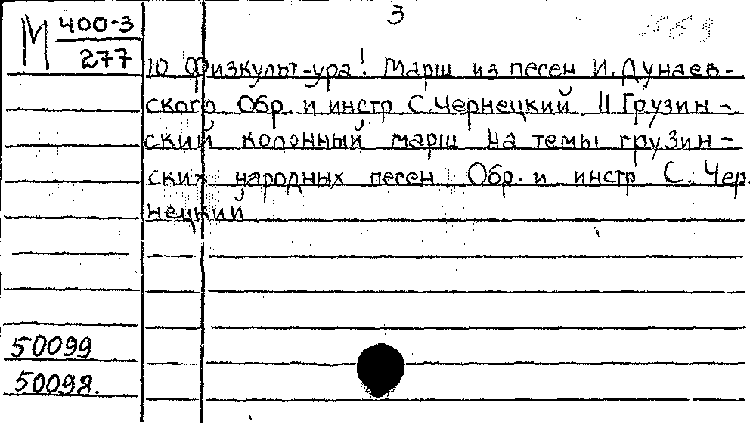 3
М 400-3
277
10 Физкульт-ура! Марш из песен И. Дунаев-
ского Обр. и инстр С. Чернецкий 11 Грузин-
ский колонный марш на темы грузин-
ских народных песен Обр. и инстр С. Чер
нецкий
50099
50098.